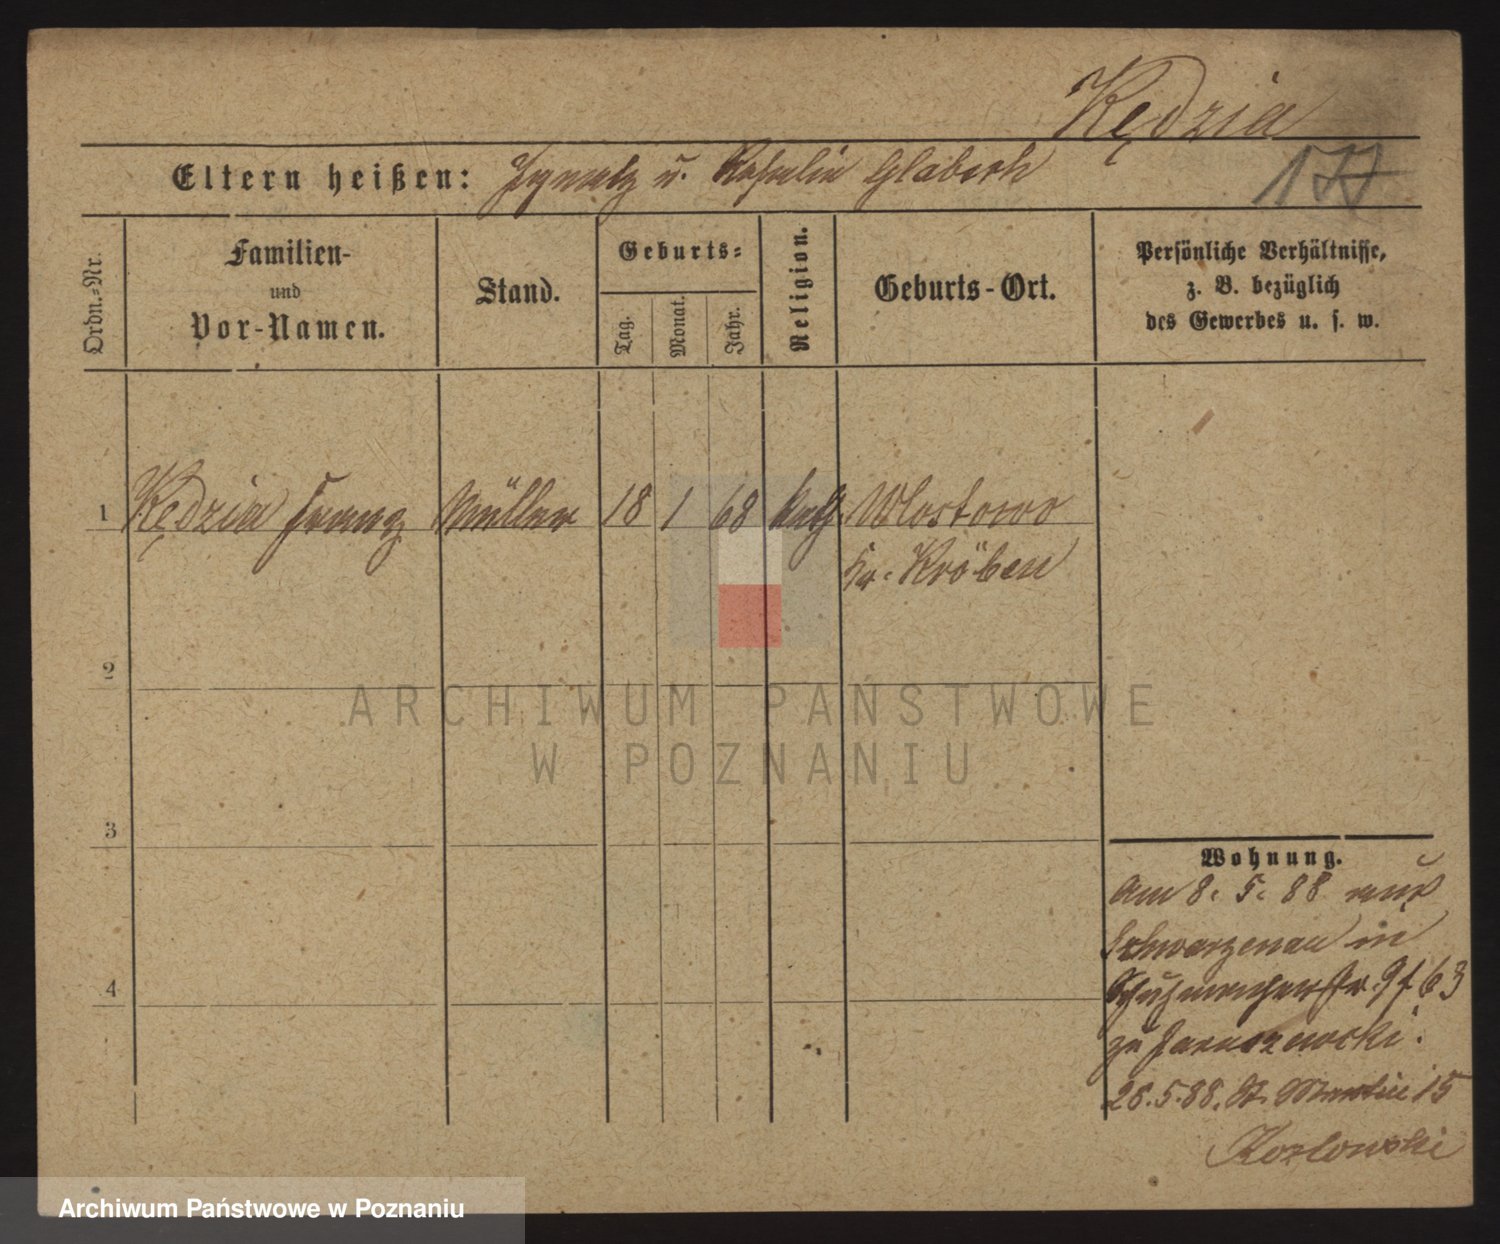 Kędzia
Eltern heißen: Ignatz u. Rosalie Glabesch
177
Ordn.-Nr.
Familien-
und
Vor-Namen.
Stand.
Geburts-
Tag.
Monat.
Jahr.
Religion.
Geburts-Ort.
Persönliche Verhältnisse,
z. B. bezüglich
des Gewerbes u. s. w.
1 Kędzia Franz Müller 18 1 68 kath. Wlostowo
Kr. Kröben
2
3
4
Wohnung.
Am 8. 5. 88 aus
Schwarzenau in
63
zu
28.5.88. St. Martin 15
Kozlowski
ARCHIWUM PAŃSTWOWE
W POZNANIU
Archiwum Państwowe w Poznaniu